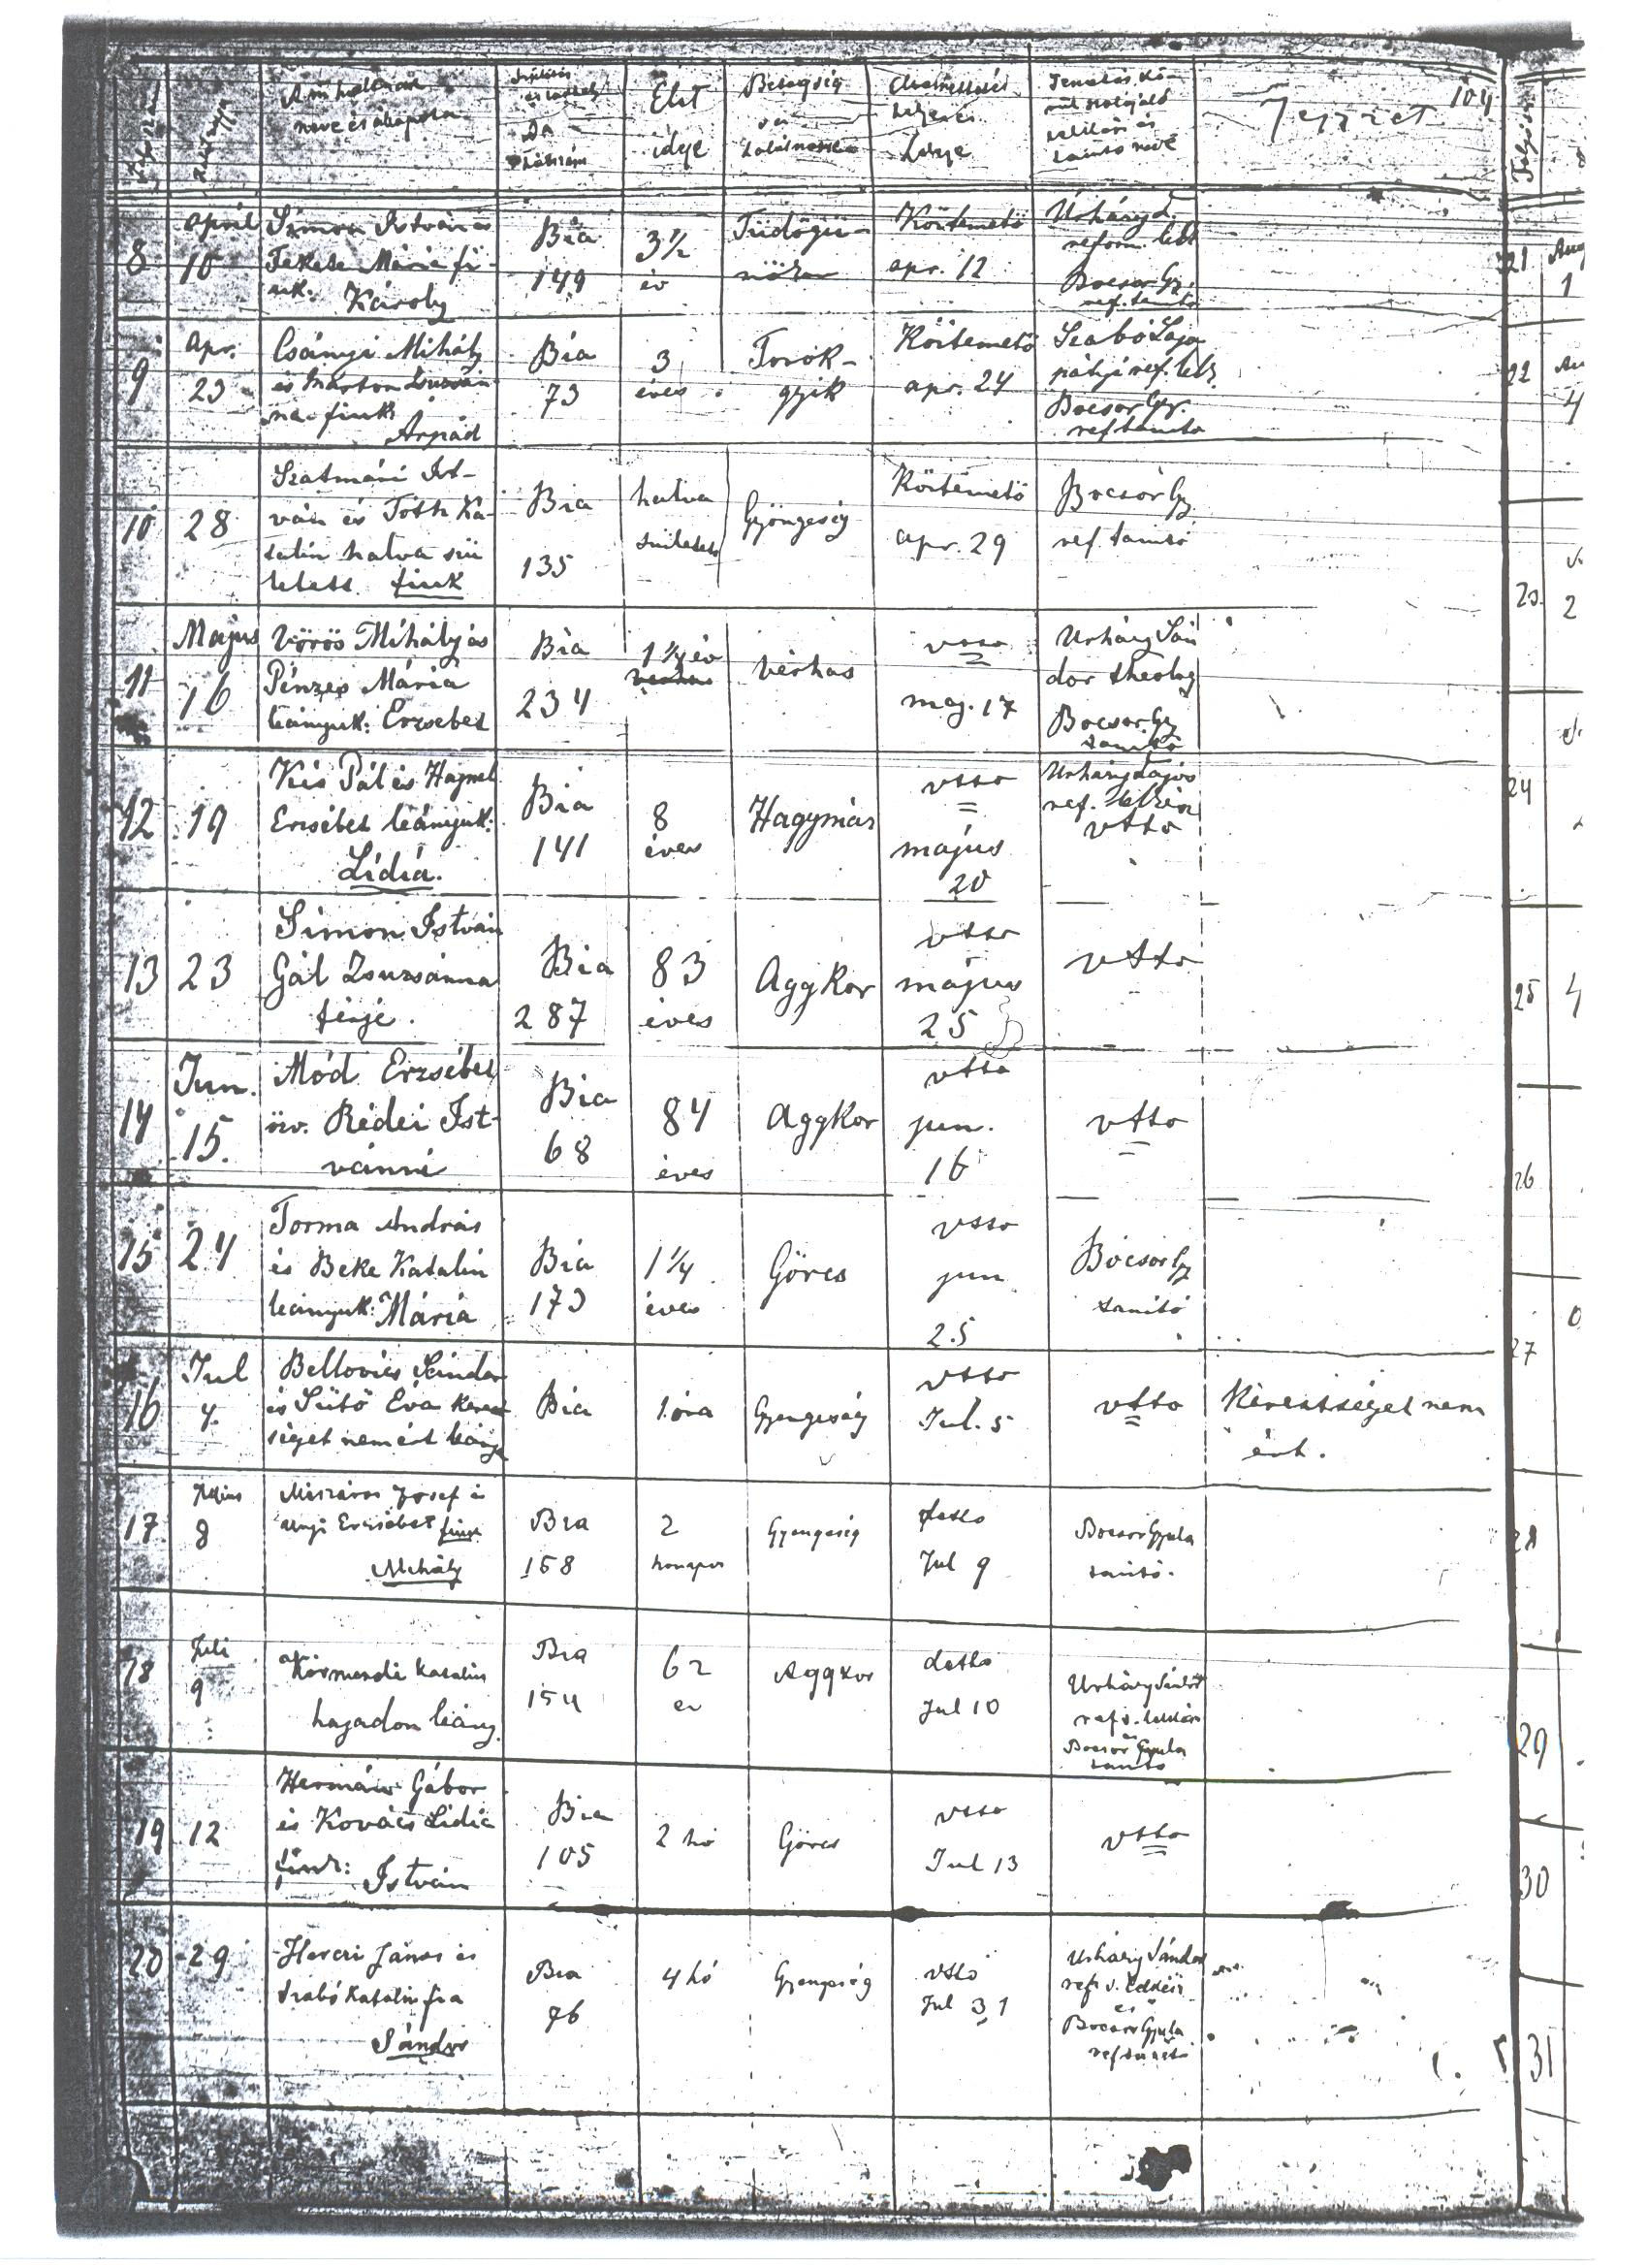 A m halottnak
neve és állapota
Élet
idye
Betegség
Jegyzet 104
8
April
10
Simon István és
Fekete Mária fi-
uk. Károly
Bia
149
3 1/2
év
Tüdőgyu-
Köztemető
apr. 12
Urházy L.
reform. lelk
Bocsor Gy.
ref. tanitó
9
Apr.
23
Csányi Mihály
és Márton Zsuzsán-
na fiuk
Árpád
Bia
73
3
éves
Torok-
gyik
Köztemető
apr. 24
Szabó Lajos
pátyi ref. lelk.
Bocsor Gy.
ref tanito
10
28
Szatmári Ist-
ván és Tóth Ka-
talin halva szü
letett fiuk
Bia
135
halva
született
Gyöngeség
Köztemető
apr. 29
Bocsor Gy
ref. tanitó
11
Május
16
Vörös Mihály és
Pénzes Mária
leányuk: Erzsébet
Bia
234
1 1/4 év
verhas
vérhas
vtto
maj. 17
Urházy Sán
dor theolog
Bocsor Gy
tanitó
12
19
Kis Pál és Hajnal
Erzsébet leányuk:
Lídiá.
Bia
141
8
éves
Hagymás
vtto
május
20
Urházy Lajos
ref. lelkész
vtto
13
23
Simon István
Gál Zsuzsánna
férje.
Bia
287
83
éves
Aggkor
vtto
május
25
vtto
14
Jun.
15.
Mód Erzsébet
özv. Rédei Ist-
vánné
Bia
68
84
éves
Aggkor
vtto
jun.
16
vtto
15
24
Torma András
és Beke Katalin
leányuk: Mária
Bia
173
1 1/4
éves
Görcs
vtto
jun
25
Bocsor Gy
tanitó
16
Jul
4.
Bellovics Sándor
és Sütő Éva keresz
séget nem ért leánya
Bia
1 óra
Gyengeség
vtto
Jul. 5
vtto
Keresztséget nem
ért.
17
Julius
8
Mészáros József és
Erzsébet fiuk
Mihály
Bia
158
2
honapos
Gyengeség
detto
Jul 9
Bocsor Gyula
tanitó.
18
Juli
9
Körmendi Katalin
hajadon leány.
Bia
154
62
ev
Aggkor
detto
Jul 10
Urházy Sándor
ref s. lelkész
és
Bocsor Gyula
tanitó
19
12
Hermán Gábor
és Kovács Lidia
fiuk:
István
Bia
105
2 hó
Görcs
vtto
Jul 13
vtto
20
29
Herczi János és
Szabó Katalin fia
Sándor
Bia
76
4 hó
Gyengeség
vtto
Jul 31
Urházy Sándor
ref s. lelkész
és
Bocsor Gyula
ref tanitó
21
1
22
4
23.
2
24
25
4
26
27
28
29
30
31